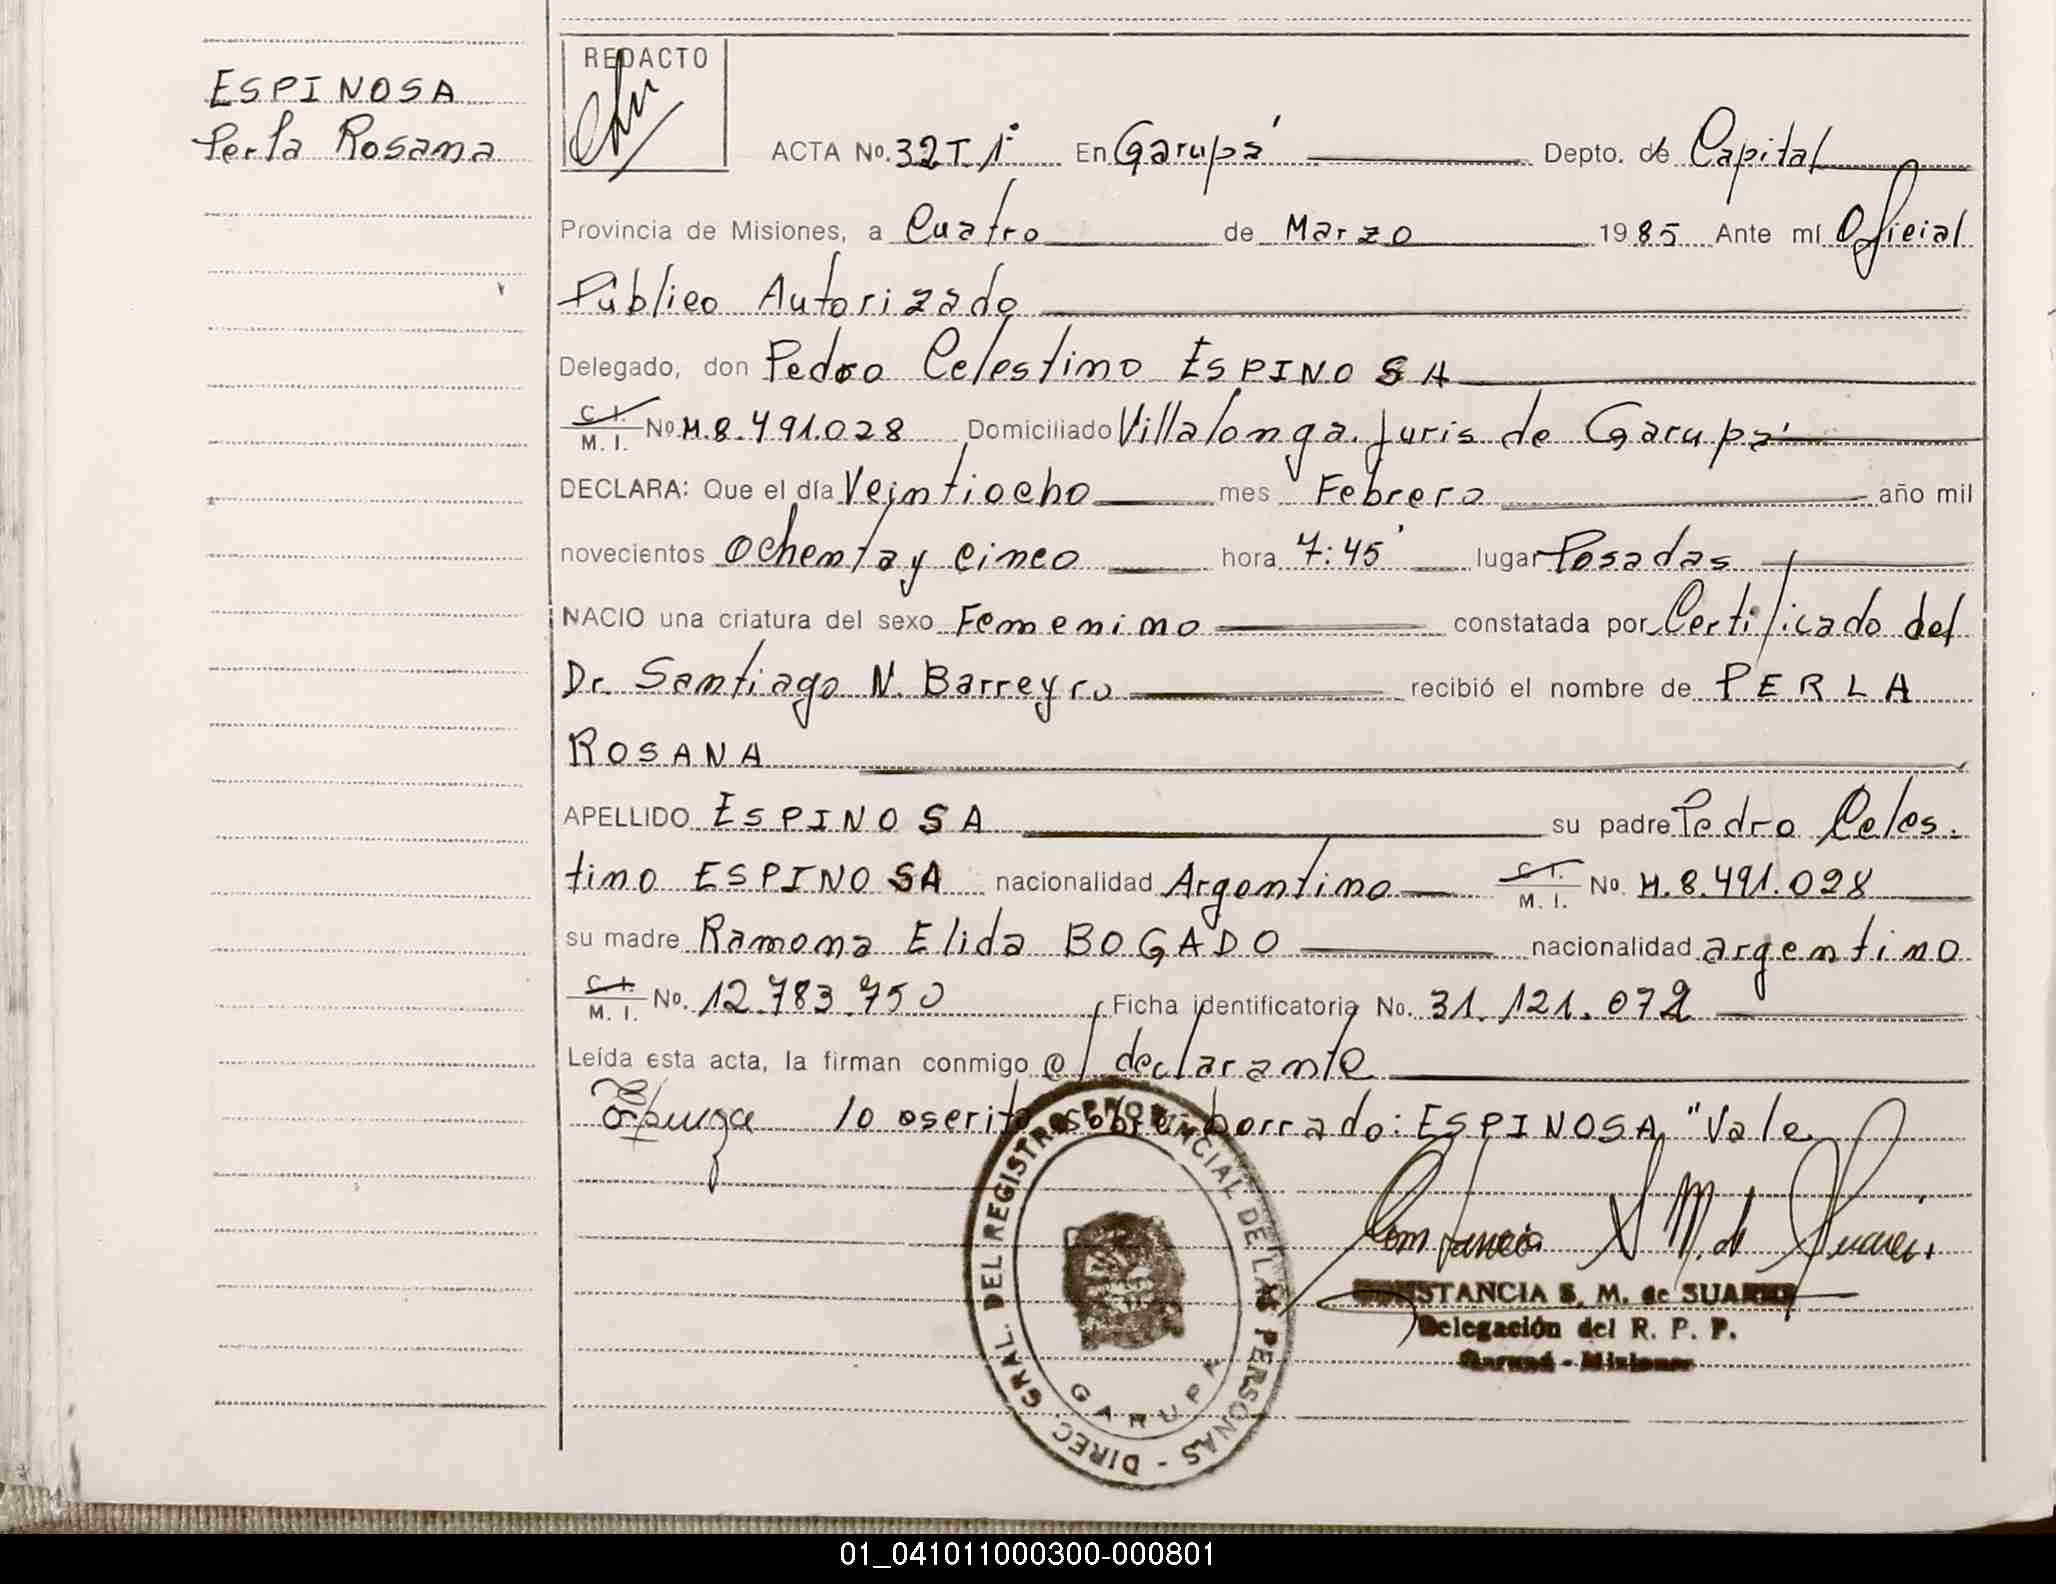 ESPINOSA
Perla Rosana
REDACTO
ACTA No. 32 T. 1° En Garupá Depto. de Capital
Provincia de Misiones, a Cuatro de Marzo 1985 Ante mí Oficial
Público Autorizado
Delegado, don Pedro Celestino ESPINOSA
C. I. / M. I. No M.8.491.028 Domiciliado Villalonga. Juris de Garupá
DECLARA: Que el día Veintiocho mes Febrero año mil
novecientos Ochenta y cinco hora 7:45' lugar Posadas
NACIO una criatura del sexo Femenino constatada por Certificado del
Dr. Santiago N. Barreyro recibió el nombre de PERLA
ROSANA
APELLIDO ESPINOSA su padre Pedro Celes-
tino ESPINOSA nacionalidad Argentino C. I. / M. I. No. M.8.491.028
su madre Ramona Elida BOGADO nacionalidad argentino
C. I. / M. I. No. 12.783.750 Ficha identificatoria No. 31.121.072
Leída esta acta, la firman conmigo el declarante
lo escrito sobre borrado: ESPINOSA "Vale
Constancia S. M. de Suarez
CONSTANCIA S. M. de SUAREZ
Delegación del R. P. P.
Garupá - Misiones
DIREC. GRAL. DEL REGISTRO PROVINCIAL DE LAS PERSONAS -
GARUPA
01_041011000300-000801